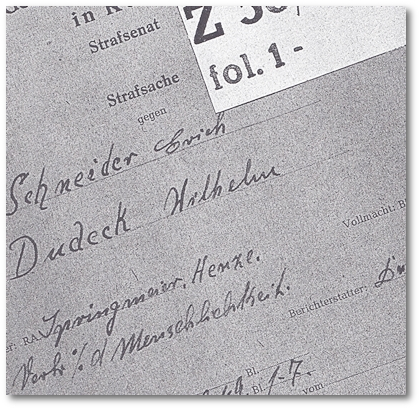 in K
Strafsenat
Z 38/
fol. 1-
Strafsache
gegen
Schneider Erich
Dudeck Wilhelm
Vollmacht: B
er: RA Springmeier, Henze.
Verbr. %. d Menschlichkeit.
Berichterstatter:
Bl.
Bl. 1-7.
vom